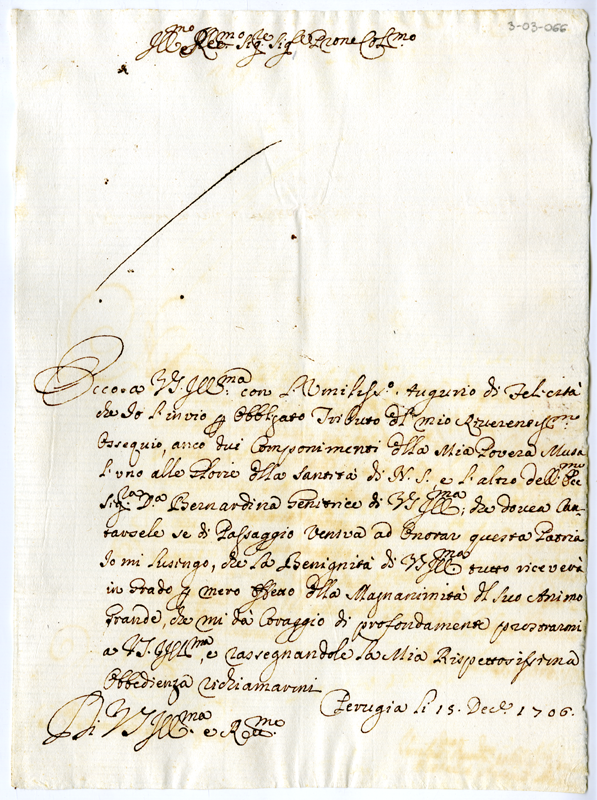 3-03-066
Ill.mo Rev.mo Sig.e Sig.e Prone Col.mo
Eccoci a VS. Ill.ma con l'Umiliss.o Augurio di Felicità
che Io l'invio p Obbligato Tributo dl mio Riverentiss.mo
Ossequio, anco dui Componimenti dlla Mia Povera Musa
l'uno alle Glorie dlla Santità di N. S. e l'altro dell'Ecc.ma
Sig.ra D.a Bernardina Genitrice di VS Ill.ma; che dovea Can-
tarsele se di Passaggio Veniva ad Onorar questa Patria
Io mi lusingo, che la Benignità di VS Ill.ma tutto riceverà
in Grado p mero Effetto dlla Magnanimità dl Suo Animo
Grande, che mi dà Coraggio di profondamente prostrarmi
a VS. Ill.ma, e rassegnandole la Mia Rispettosissima
Obbedienza richiamarmi
Perugia li 15. Dec.e 1706.
Di VS Ill.ma e Rev.ma